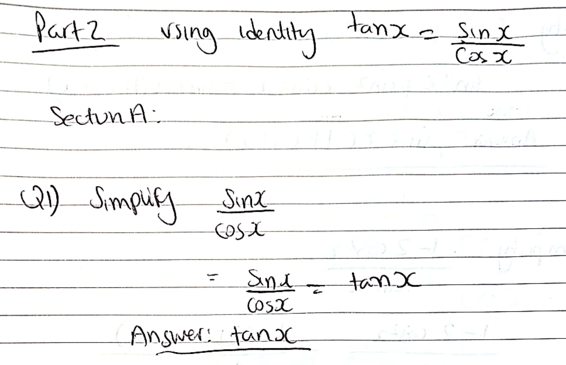 Part 2 using identity tanx = sinx/cosx
Section A:
Q1) Simplify sinx/cosx
= sinx/cosx = tanx
Answer: tanx